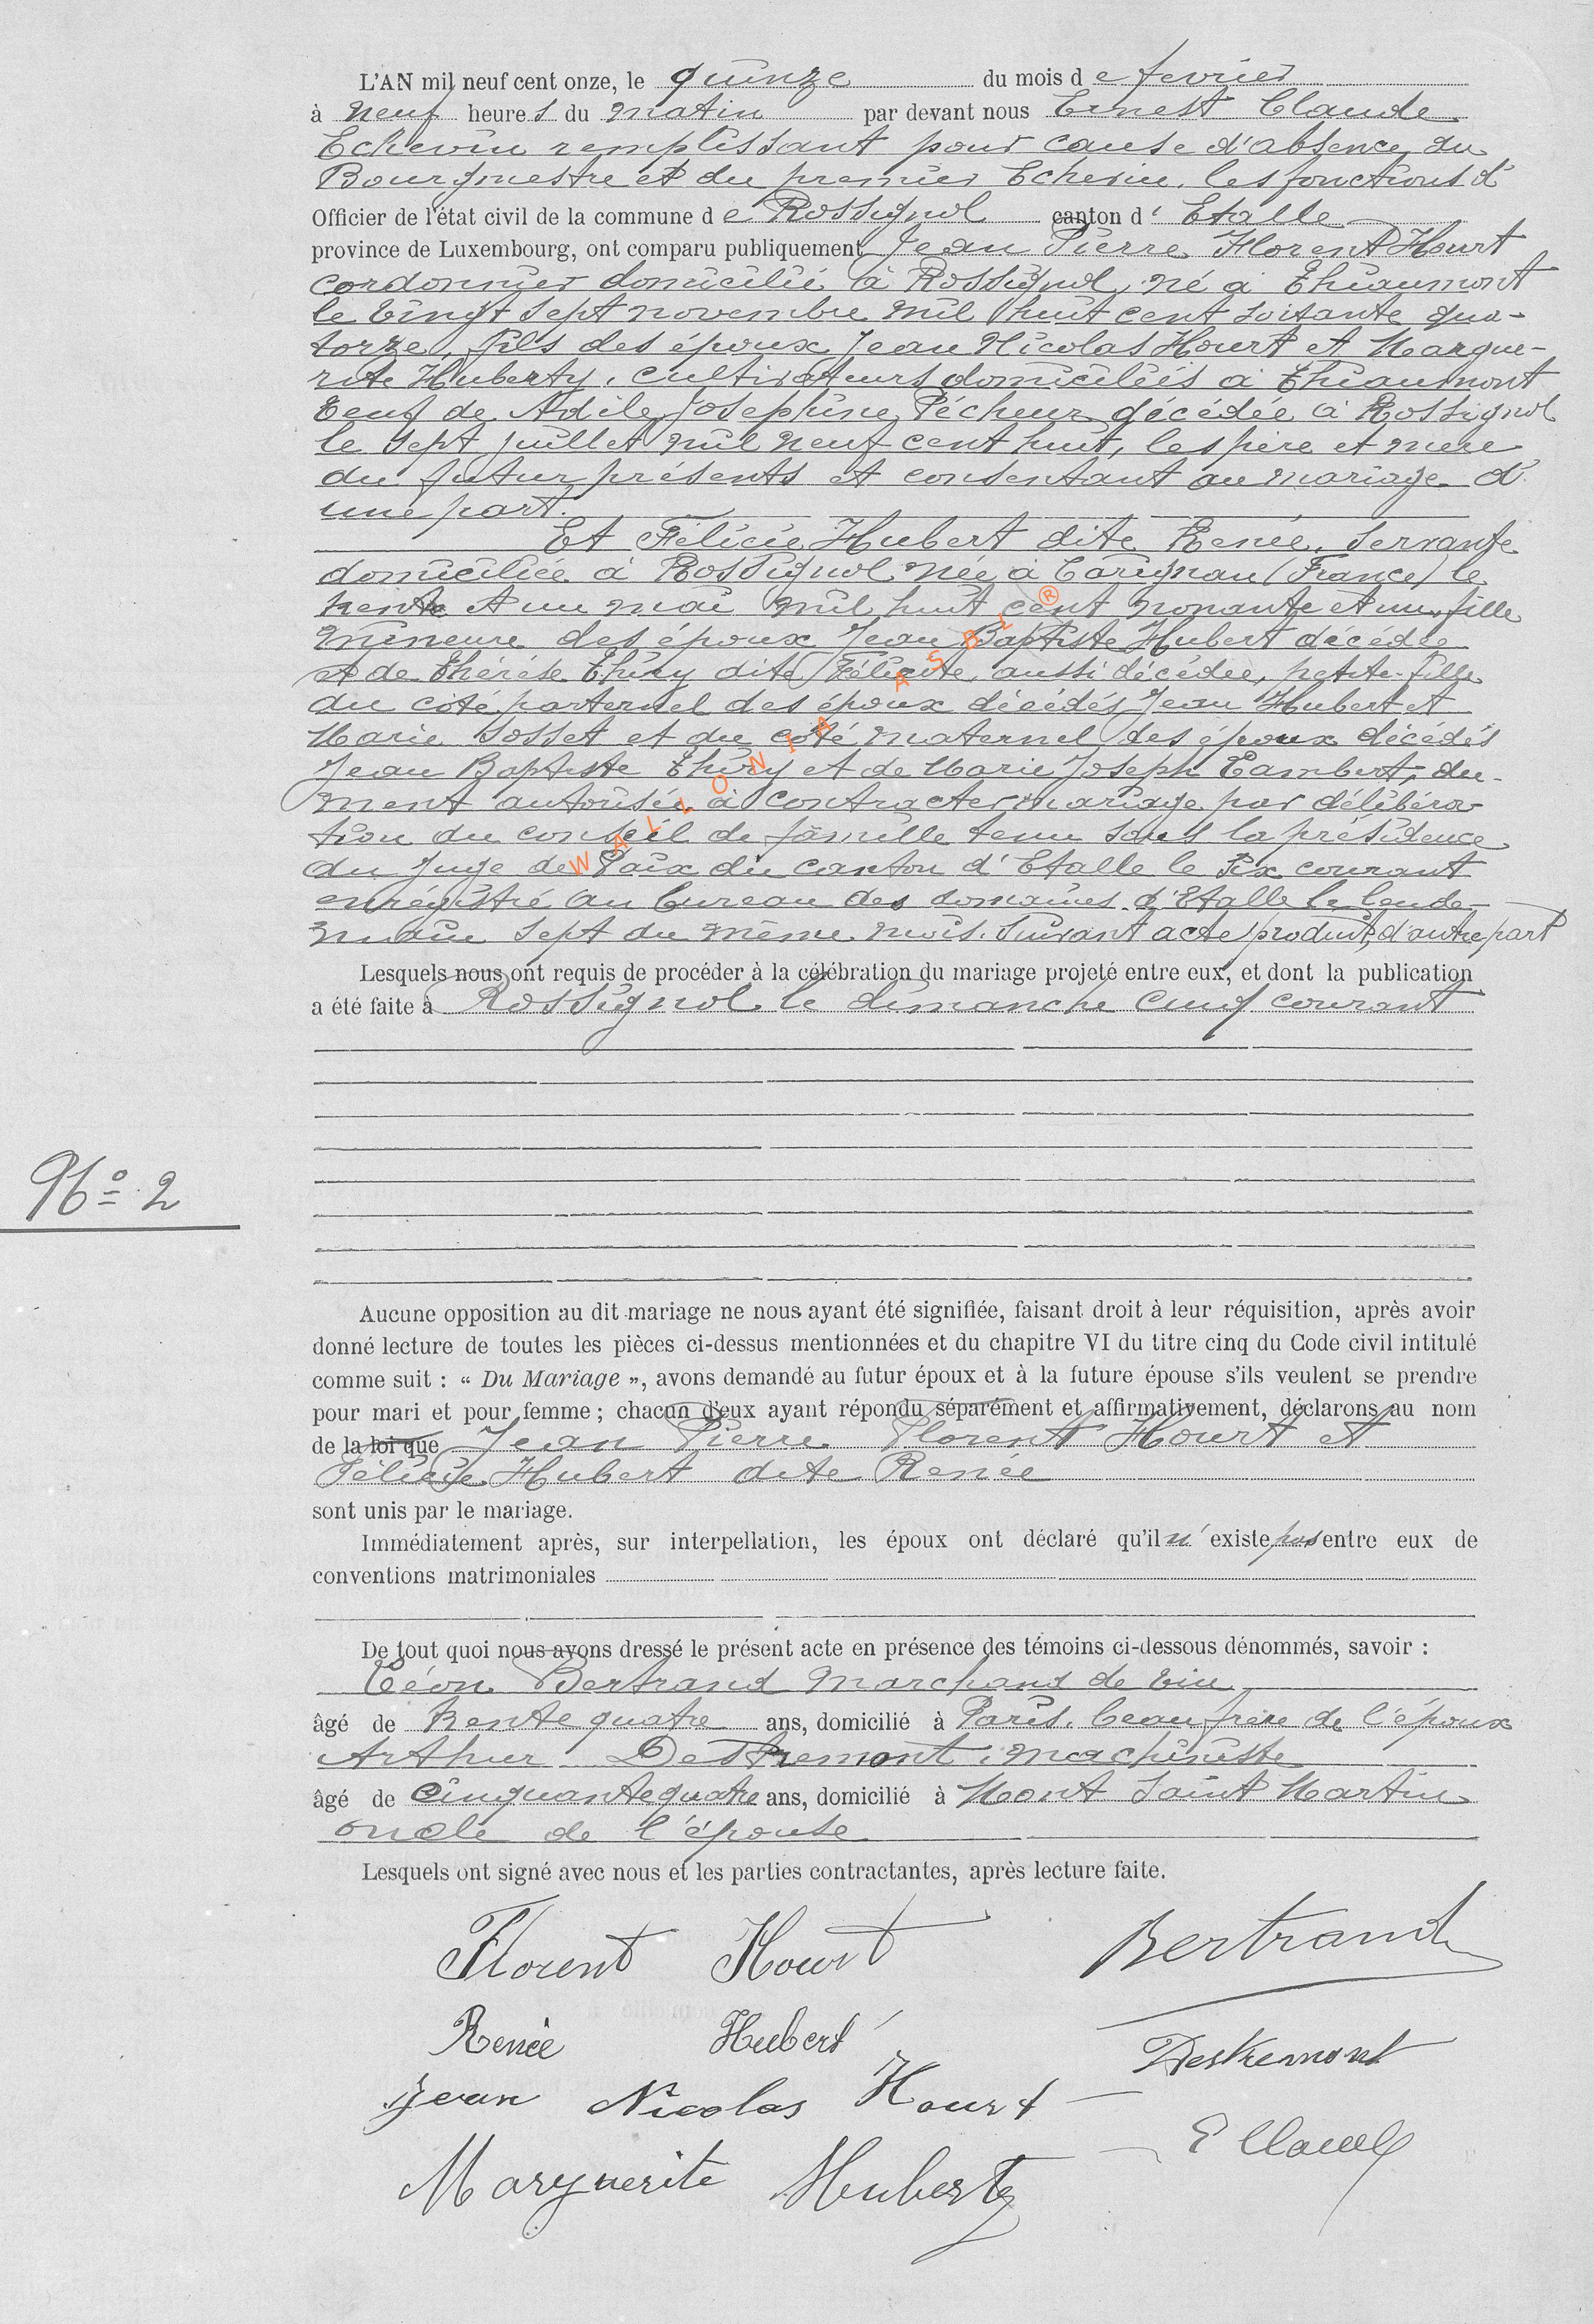 L'AN mil neuf cent onze, le quinze du mois de fevrier
à neuf heures du matin par devant nous Ernest Claude
Echevin remplissant pour cause d'absence du
Bourgmestre et du premier Echevin, les fonctions d'
Officier de l'état civil de la commune de Rossignol canton d'Etalle
province de Luxembourg, ont comparu publiquement Jean Pierre Florent Hourt
cordonnier domicilié à Rossignol, né à Thiaumont
le vingt sept novembre mil huit cent soixante qua-
torze, fils des époux Jean Nicolas Hourt et Margue-
rite Huberty, cultivateurs domiciliés à Thiaumont
veuf de Adèle Joséphine Pécheur décédée à Rossignol
le sept juillet mil neuf cent huit, les père et mère
du futur présents et consentant au mariage d'
une part.
Et Félicie Hubert dite Renée, servante
domiciliée à Rossignol née à Carignan (France) le
trente et un mai mil huit cent nonante et un, fille
mineure des époux Jean Baptiste Hubert décédé
et de Thérèse Thiry dite Félicité, aussi décédée, petite-fille
du côté parternel des époux décédés Jean Hubert et
Marie Sosset et du côté maternel des époux décédés
Jean Baptiste Thiry et de Marie Joseph Lambert, du-
ment autorisée à contracter mariage par délibéra-
tion du conseil de famille tenu sous la présidence
du Juge de Paix du canton d'Etalle le six courant
enrégistré au bureau des domaines d'Etalle le lende-
main sept du même mois. Suivant acte produit, d'autre part
Lesquels nous ont requis de procéder à la célébration du mariage projeté entre eux, et dont la publication
a été faite à Rossignol le dimanche cinq courant
No 2
Aucune opposition au dit mariage ne nous ayant été signifiée, faisant droit à leur réquisition, après avoir
donné lecture de toutes les pièces ci-dessus mentionnées et du chapitre VI du titre cinq du Code civil intitulé
comme suit : « Du Mariage », avons demandé au futur époux et à la future épouse s'ils veulent se prendre
pour mari et pour femme ; chacun d'eux ayant répondu séparément et affirmativement, déclarons au nom
de la loi que Jean Pierre Florent Hourt et
Félicie Hubert dite Renée
sont unis par le mariage.
Immédiatement après, sur interpellation, les époux ont déclaré qu'il n'existe pas entre eux de
conventions matrimoniales
De tout quoi nous avons dressé le présent acte en présence des témoins ci-dessous dénommés, savoir :
Léon Bertrand marchand de vin
âgé de trente quatre ans, domicilié à Paris, beau frère de l'époux
Arthur Destremont, machiniste
âgé de cinquante quatre ans, domicilié à Mont Saint Martin
oncle de l'épouse
Lesquels ont signé avec nous et les parties contractantes, après lecture faite.
Florent Hourt Bertrand
Renée Hubert Destremont
Jean Nicolas Hourt
E Claude
Marguerite Huberty
WALLONIA ASBL ®